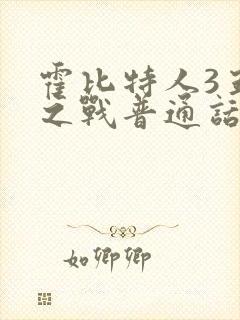 霍比特人3五
之戰普通話
如卿卿